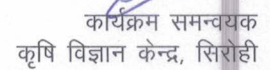 कार्यक्रम समन्वयक
कृषि विज्ञान केन्द्र, सिरोही